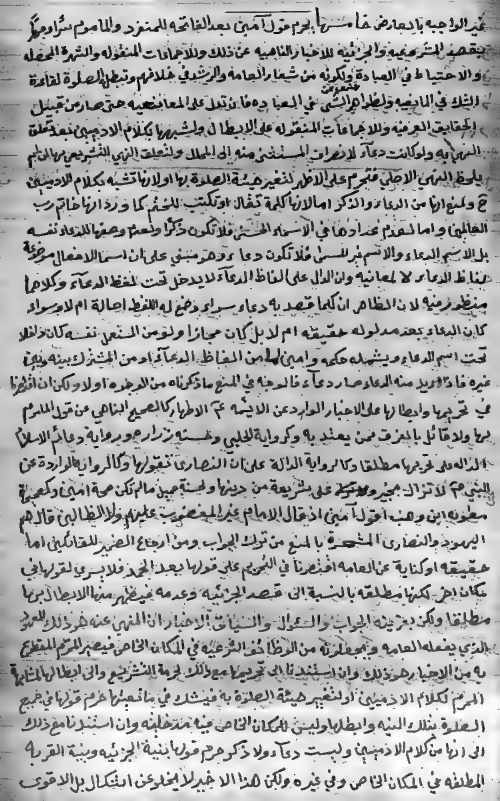 غير الواجبة بالعارض فا منها يحرم قول آمين بعد الفاتحة للمنفرد والماموم سرا وجهرا
بقصد المشروعيه والجزئيه للاخبار الناهيه عن ذلك وللاجماعات المنقوله والشهرة المحصله
والاحتياط في العبادة ولكونه من شعار العامه والرشد في خلافهم وتبطل الصلوة لقاعدة
الشك في المانعيه ولظواهر النهي في العبادة فان تدل على المعانيه حتى صار من قبيل
الحقايق العرفيه وللاجماعات المنقوله على الابطال ولشبهها بكلام الادميين بعد تعلق
النهي به ولو كانت دعاء لانصراف المستثنى منه الى المحلل ولتعلق النهي التشريعي بها ان لم
يلحظ النهي الاصلي فتحرم على الاظهر لتغير هيئة الصلوة بها اولا لانها تشبه بكلام الادميين
ح ولمنع انها من الدعاء والذكر اما لانها كلمة تقال او تكتب للختم كما ورد انها خاتم رب
العالمين واما لعدم عدها في الاسماء الحسنى فلا تكون ذكرا ولعدم وضعها للدعاء نفسه
بل لاسم الدعاء والاسم غير المسمى فلا تكون دعاء وهو مبني على ان اسماء الافعال موضوعة
لالفاظ الدعاء لا لمعانيه وان الدال على الفاظ الدعاء لا يدخل تحت لفظ الدعاء وكلاهما
منظور فيه لان الظاهر ان كلما قصد به دعاء سواء وضع له اللفظ اصالة ام لا وسواء
كان الدعاء بعد مدلوله حقيقة ام لا بل كان مجازا ولو من المتعمل نفسه كان داخلا
تحت اسم الدعاء ويشمله حكمه وامين اما من الفاظ الدعاء او من المشترك بينه وبين
غيره فاذا اريد منه الدعاء صار دعاء فالوجه في المنع ما ذكرناه من الوجوه اولا ولكن ان اقتصرنا
في تحريمها وابطالها على الاخبار الواردة عن الائمة عم الاطهار كالصحيح الناهي عن قول الماموم
لها ولا قائل بالفرق ممن يعتد به وكرواية الحلبي وحسنه زرارة ورواية دعائم الاسلام
الداله على تحريمها مطلقا وكالرواية الدالة على ان النصارى تقولها وكالرواية الواردة عن
النبي ص لا تزال بخير على شريعة من دينها ولحسنة جميل ما لم تكن ضجة امين وكصحيحة
معاويه ابن وهب اقول آمين اذ قال الامام غير المغضوب عليهم ولا الظالين قال هم
اليهود والنصارى بالمنع من ترك الجواب ومن ارجاع الضمير للقائلين اما
حقيقه او كناية عن العامه اقتصرنا في التحريم على قولها بعد الحمد فلا يسري لقولها في
مكان اخر لكنها مطلقه بالنسبة الى قصد الجزئيه وعدمه فيظهر منها الابطال بها
مطلقا ولكن بقرينة الجواب والسؤال والسياق الاخبار ان المنهي عنه هو ذلك للعود
الذي يفعله العامه ويجعلونه من الوظائف الشرعيه في المكان الخاص فيصير المحرم المقطوع
به من الاخبار هو ذلك وان استندنا الى تحريمها مع ذلك لحرمة التشريع والى ابطالها لمشابهة
المحرم لكلام الادميين او لتغيير هيئة الصلوة به فيشك في مانعيتها حرم قولها في جميع
الصلوة بتلك النيه وابطلها وليس للمكان الخاص فيه مدخلية وان استندنا مع ذلك
الى انها من كلام الادميين وليست دعاء ولا ذكر حرم قولها بنية الجزئيه وبنية القربة
المطلقه في المكان الخاص وفي غيره ولكن هذا الاخير لا يخلو عن اشكال بل الاقوى